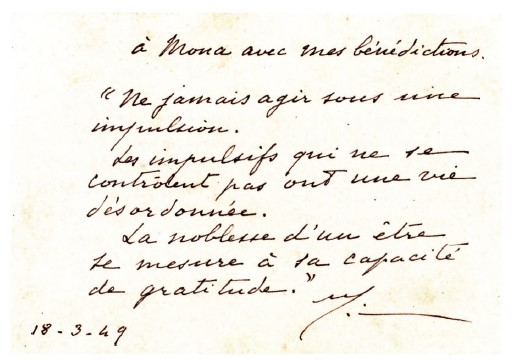 à Mona avec mes bénédictions.
"Ne jamais agir sous une
impulsion.
Les impulsifs qui ne se
contrôlent pas ont une vie
désordonnée.
La noblesse d'un être
se mesure à sa capacité
de gratitude."
18-3-49